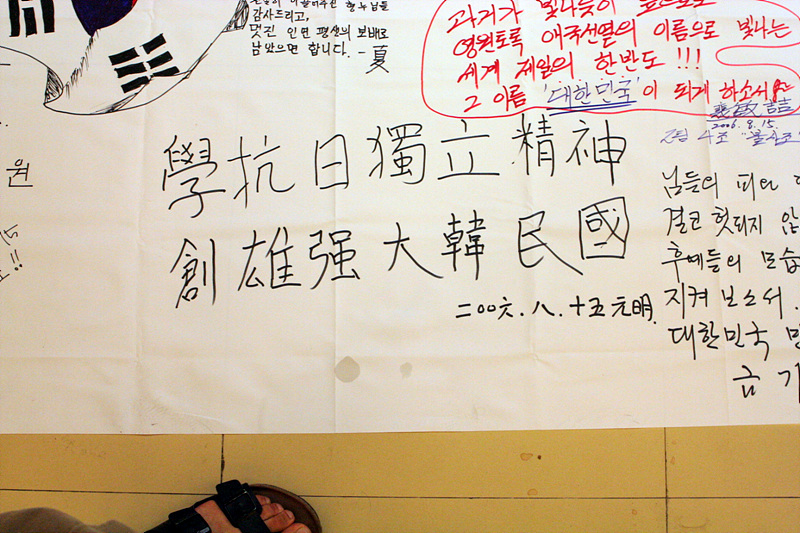 감사드리고,
멋진 인연 평생의 보배로
남았으면 합니다. - 夏
과거가 빛나듯이 앞으로도
영원토록 애국선열의 이름으로 빛나는
세계 제일의 한반도!!!
그 이름 '대한민국'이 되게 하소서
2006. 8. 15.
學抗日獨立精神
創雄强大韓民國
二00六.八.十五 元明.
원
!!
님들의 피와
결코 헛되지 않
후예들의 모습
지켜보소서.
대한민국 만
금 기